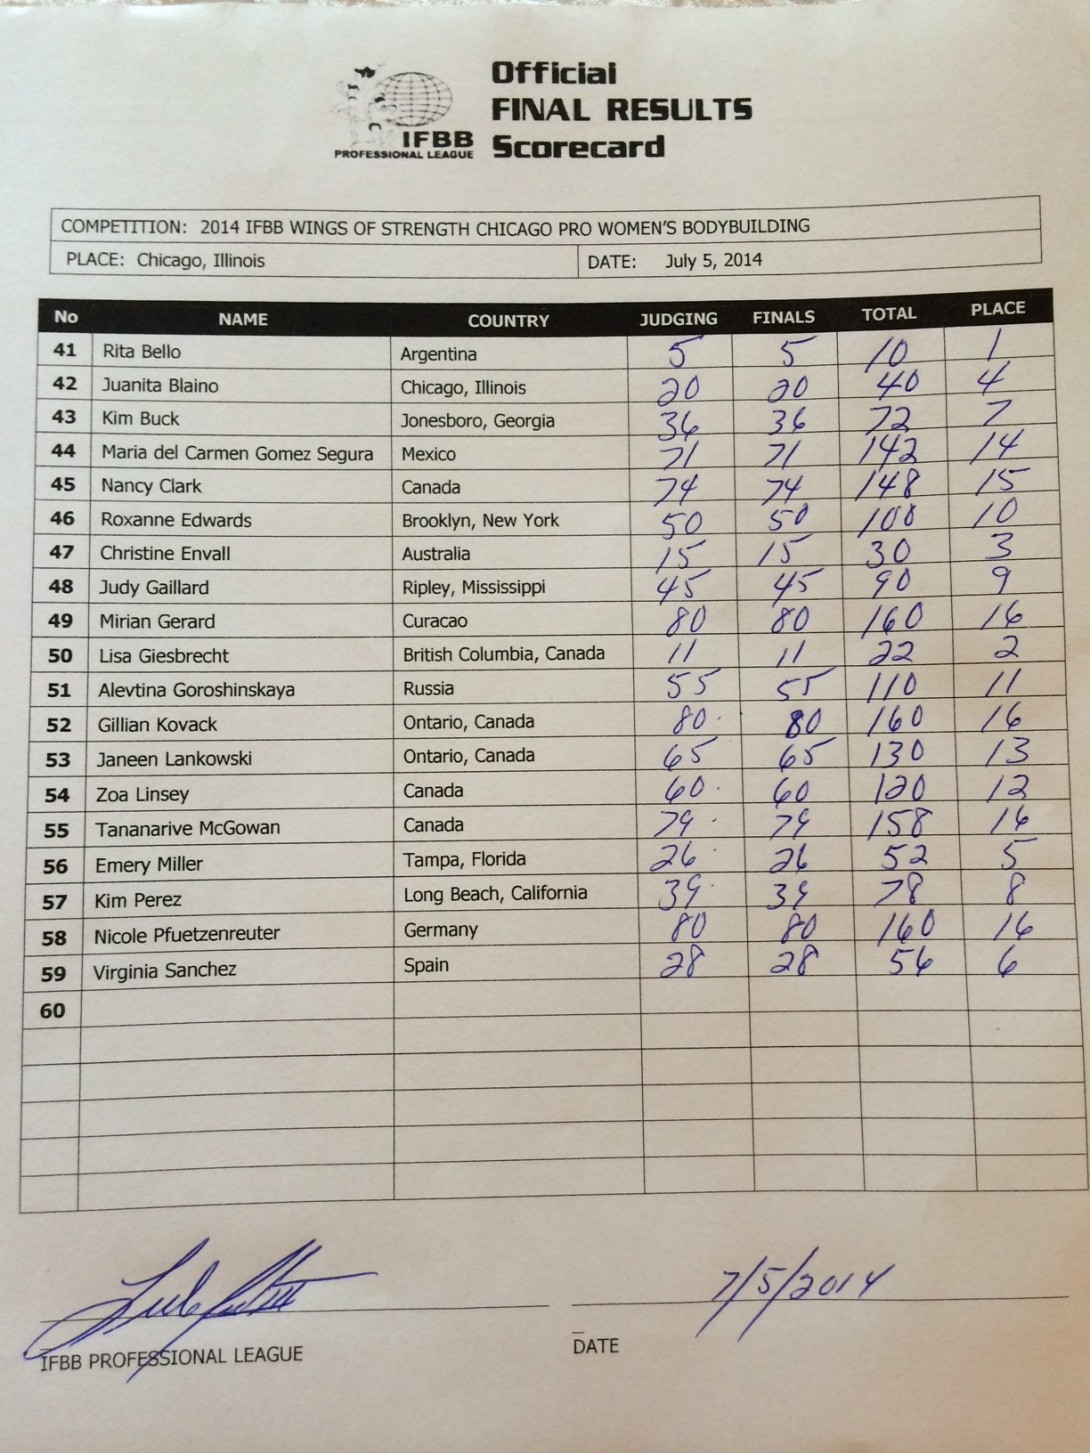 Official
FINAL RESULTS
Scorecard
IFBB
PROFESSIONAL LEAGUE
COMPETITION: 2014 IFBB WINGS OF STRENGTH CHICAGO PRO WOMEN'S BODYBUILDING
PLACE: Chicago, Illinois DATE: July 5, 2014
No NAME COUNTRY JUDGING FINALS TOTAL PLACE
41 Rita Bello Argentina 5 5 10 1
42 Juanita Blaino Chicago, Illinois 20 20 40 4
43 Kim Buck Jonesboro, Georgia 36 36 72 7
44 Maria del Carmen Gomez Segura Mexico 71 71 142 14
45 Nancy Clark Canada 74 74 148 15
46 Roxanne Edwards Brooklyn, New York 50 50 100 10
47 Christine Envall Australia 15 15 30 3
48 Judy Gaillard Ripley, Mississippi 45 45 90 9
49 Mirian Gerard Curacao 80 80 160 16
50 Lisa Giesbrecht British Columbia, Canada 11 11 22 2
51 Alevtina Goroshinskaya Russia 55 55 110 11
52 Gillian Kovack Ontario, Canada 80 80 160 16
53 Janeen Lankowski Ontario, Canada 65 65 130 13
54 Zoa Linsey Canada 60 60 120 12
55 Tananarive McGowan Canada 79 79 158 16
56 Emery Miller Tampa, Florida 26 26 52 5
57 Kim Perez Long Beach, California 39 39 78 8
58 Nicole Pfuetzenreuter Germany 80 80 160 16
59 Virginia Sanchez Spain 28 28 56 6
60
7/5/2014
IFBB PROFESSIONAL LEAGUE DATE